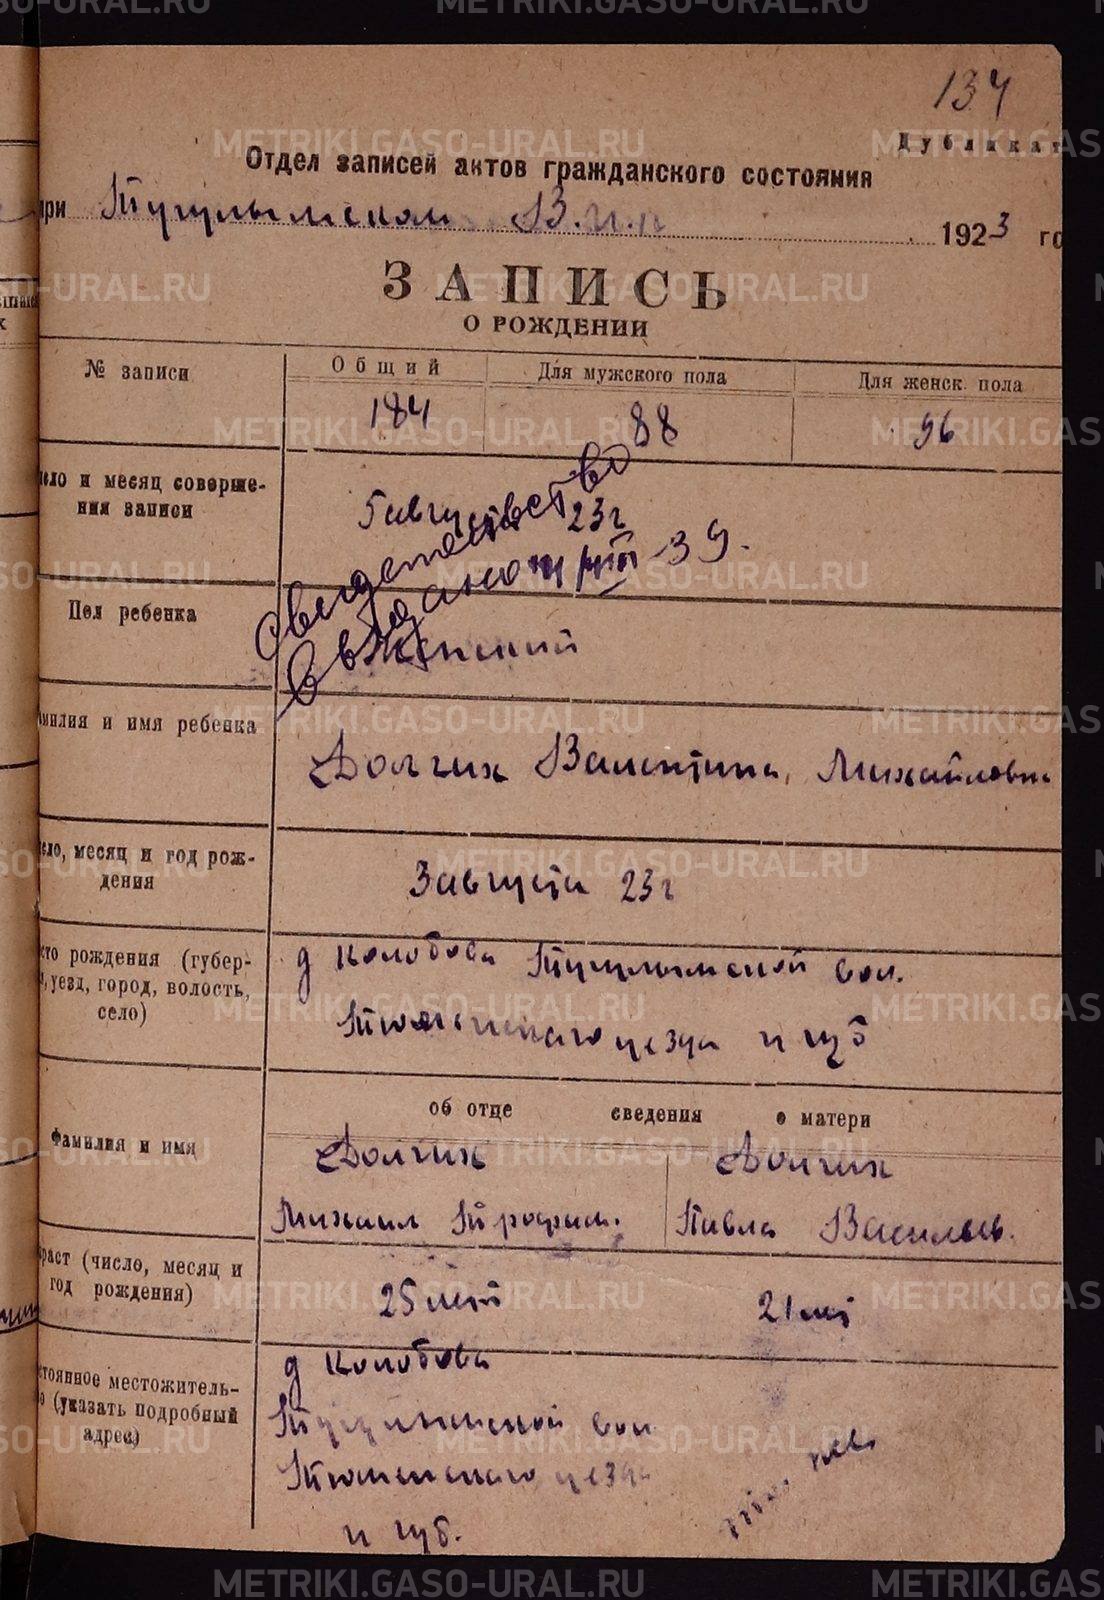 134
Дубликат
Отдел записей актов гражданского состояния
при Тугулымском В.И.К 1923 го
ЗАПИСЬ
О РОЖДЕНИИ
№ записи
Общий Для мужского пола Для женск. пола
184 88 96
сло и месяц соверше-
ния записи
5 августа
23 г
Свидетельство
выдано
39.
Пол ребенка
Женский
амилия и имя ребенка
Долгих Валентина Михайловна
сло, месяц и год рож-
дения
3 августа 23 г
сто рождения (губер-
, уезд, город, волость,
село)
д Колобова Тугулымской вол.
Тюменского уезда и губ
об отце сведения о матери
Фамилия и имя
Долгих Долгих
Михаил Трофим. Павла Васильев.
раст (число, месяц и
год рождения)
25 лет 21 лет
стоянное местожитель-
о (указать подробный
адрес)
д Колобова
Тугулымской вол
Тюменского уезда
и губ.
METRIKI.GASO-URAL.RU